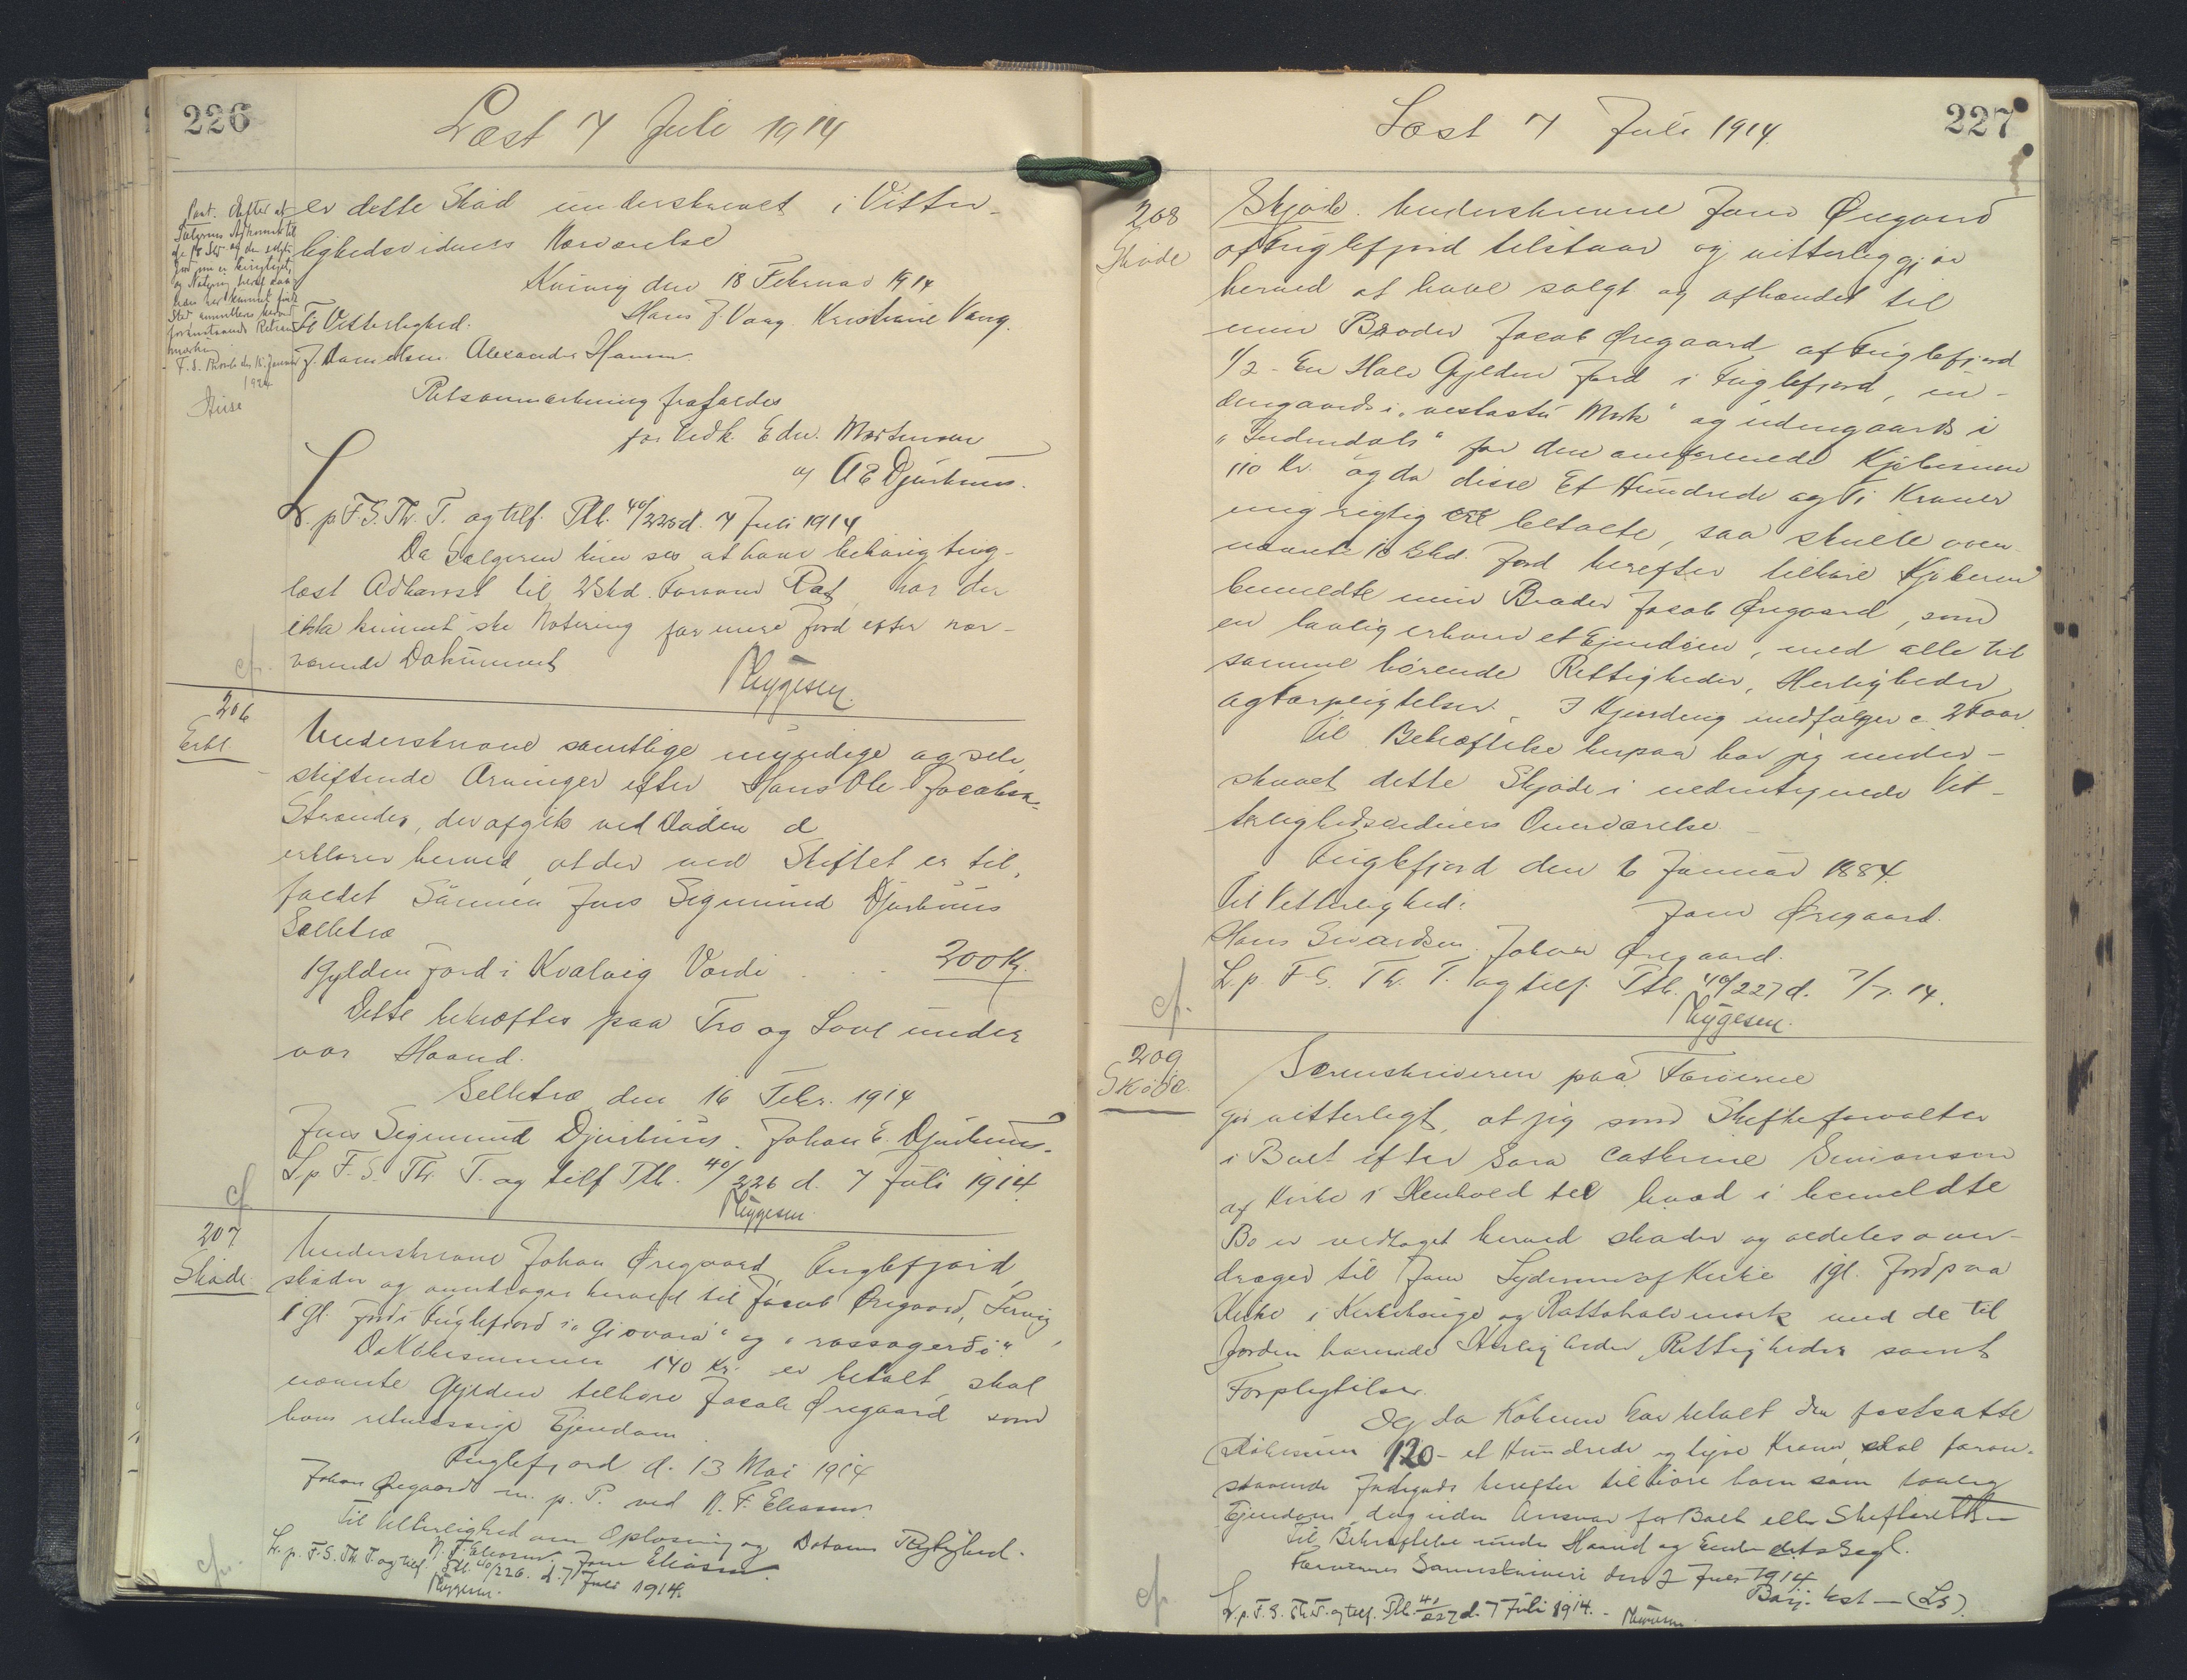 226
Læst 7 Juli 1914
er dette Skød underskrevet i Vitter-
lighedsvidners Nærværelse
Kvivig den 18 Februar 1914
Hans J. Vang. Kristiane Vang.
Til Vitterlighed.
J. Danielsen. Alexander Hansen
Retsanmærkning frafaldes
for Vedk. Edv. Mortensen
A E Djurhuus.
L. p. F. S. Th. T. og tilf. Ptb. 40/225 d. 7 Juli 1914
Da Sælgeren kun ses at have behørig ting-
læst Adkomst til 2 Skd. Jord, har der
ikke kunnet ske Notering for mere Jord efter nær-
værende Dokument
Thygesen.
cf.
206
Erkl.
Underskrevne samtlige myndige og selv-
skiftende Arvinger efter Hans Ole Jacobsen
Strender, der afgik ved Døden d
erklærer herved, at der ved Skiftet er til-
faldet Sønnen Jens Sigmund Djurhuus
Selletræ
1 Gylden Jord i Kvalvig Værdi . . . 200 Kr.
Dette bekræftes paa Tro og Love under
vor Haand.
Selletræ den 16 Febr. 1914
Jens Sigmund Djurhuus. Johan E. Djurhuus.
L. p. F. S. Th. T. og tilf. Ptb. 40/226 d. 7 Juli 1914
Thygesen.
cf
207
Skøde.
Underskrevne Johan Øregaard, Fuglefjord,
skøder og overdrager herved til Jacob Øregaard, Lervig,
1 gl. Jord i Fuglefjord i "Giovara" og "rossagerði".
Da Købesummen 140 Kr. er betalt, skal
nævnte Gylden tilhøre Jacob Øregaard som
hans retmæssige Ejendom.
Fuglefjord d. 13 Mai 1914
Johan Øregaard m. p. P. ved N. F. Eliasen.
Til Vitterlighed om Oplæsning og Datoens Rigtighed.
N. F. Eliasen. Jens Eliasen.
L. p. F. S. Th. T. og tilf. Ptb. 40/226. d. 7 Juli 1914.
Thygesen.
cf.
227
Læst 7 Juli 1914.
208
Skøde
Skjøde. Underskrevne Jens Øregaard
af Fuglefjord tilstaar og vitterliggjør
herved at have solgt og afhændet til
min Broder Jacob Øregaard af Fuglefjord
1/2 - En Halv Gylden Jord i Fuglefjord, in-
dengaards i "vestastu Mørk" og udengaards i
for den omforenede Kjøbesum
110 Kr. og da disse Et Hundrede og Ti Kroner
mig rigtig ere betalte, saa skulle oven-
nævnte 10 Skd. Jord herefter tilhøre Kjøberen
bemeldte min Broder Jacob Øregaard, som
en lovlig erhvervet Ejendom, med alle til
samme hørende Rettigheder, Herligheder
og Forpligtelser. I Hjording medfølger c. 2 Faar.
Til Bekræftelse herpaa har jeg under-
skrevet dette Skjøde i nedentegnede Vit-
terlighedsvidners Overværelse.
Fuglefjord den 6 Januar 1884.
Til Vitterlighed: Jens Øregaard.
Hans Sivardsen. Johan Øregaard.
L. p. F. S. Th. T. og tilf. Ptb. 40/227 d. 7/7. 14.
Thygesen.
cf.
209
Skøde.
Sorenskriveren paa Færøerne
gør vitterligt, at jeg som Skifteforvalter
i Boet efter Sara Cathrine Simonsen
af Kirke i Henhold til hvad i bemeldte
Bo er vedtaget herved skøder og aldeles over-
drager til Jens Lydersen af Kirke 1 gl. Jord paa
Kirke i Kirkehauge og Rattahalsmark med de til
Jorden hørende Herligheder, Rettigheder samt
Forpligtelser.
Og da Køberen har betalt den fastsatte
Købesum 120 - et Hundrede og tyve Kroner, skal foran-
staaende Jordegods herefter tilhøre ham som lovlig
Ejendom, dog uden Ansvar for Boet eller Skifteretten
Til Bekræftelse under Haand og Embedets Segl.
Færøernes Sorenskriveri den 2 Juli 1914
Barj. kst — (LS).
L. p. F. S. Th. T. og tilf. Ptb. 40/227 d. 7 Juli 1914. - Thygesen.
cf